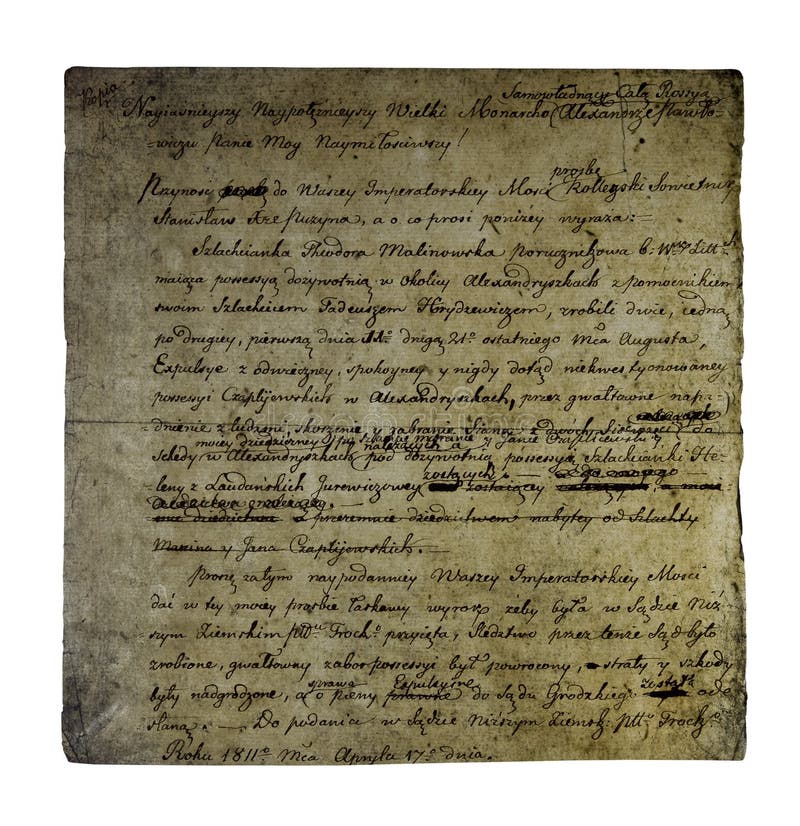 Kopia
Samowładnący Całą Rossyą
Nayiaśnieyszy Naypotężnieyszy Wielki Monarcho Alexandrze Pawło-
-wiczu Panie Moy Naymiłościwszy!
prośbę
Przynosi do Waszey Imperatorskiey Mości Kollegski Sowietnik
Stanisław Puzyna, a o co prosi poniżey wyraża:
Szlachcianka Theodora Malinowska Porucznikowa b: W Litt
maiąca possessyą dożywotnią w Okolicy Alexandryszkach z pomocnikiem
swoim Szlachcicem Tadeuszem Hrydzewiczem, zrobili dwie, iedną
po drugiey, pierwszą dnia 11º drugą 21º ostatniego Mca Augusta,
Expulsye z odwieczney, spokoyney y nigdy dotąd niekwestyonowaney
possessyi Czaplijewskich w Alexandryszkach, przez gwałtowne napa-
dnienie z ludźmi, skoszenie y zabranie Siana z dwóch Sianożęci do
moiey dziedziczney należących y Janie Czaplijewskim
Schedy w Alexandryszkach pod dożywotnią possessyą Szlachcianki He-
zostaiących
leny z Laudańskich Jurewiczowey zostaiącey
a przezemnie dziedzictwem nabytey od Szlachty
Marcina y Jana Czaplijewskich.
Proszę zatym naypodanniey Waszey Imperatorskiey Mości
dać w tey moiey prośbie łaskawy wyrok żeby była w Sądzie Niż-
szym Ziemskim pttu Trocko przyięta, śledztwo przez tenże Sąd było
zrobione, gwałtowny zabor possessyi był powrocony, straty y szkody
sprawa Expulsyine została
były nadgrodzone, a o pieny prawne do Sądu Grodzkiego ode
słaną. — Do podania w Sądzie Niższym Ziemsk: pttu Trocko
Roku 1811º Mca Apryla 17º dnia.